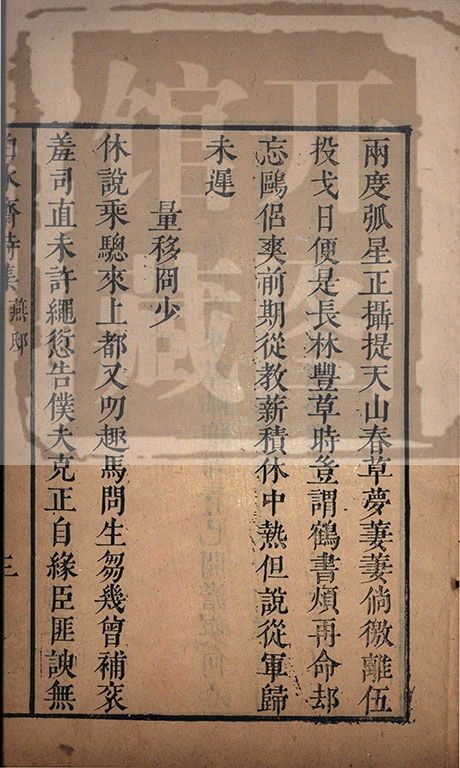 兩度弧星正攝提天山春草夢萋萋倘徼離伍
投戈日便是長林豐草時豈謂鶴書煩再命却
忘鷗侶爽前期從教薪積休中熱但說從軍歸
未遲
量移冏少
休說乘驄來上都又叨趣馬問生芻幾曾補衮
羞司直未許繩愆告僕夫克正自緣臣匪諛無
齋詩集 燕邸 三
開圖
館藏